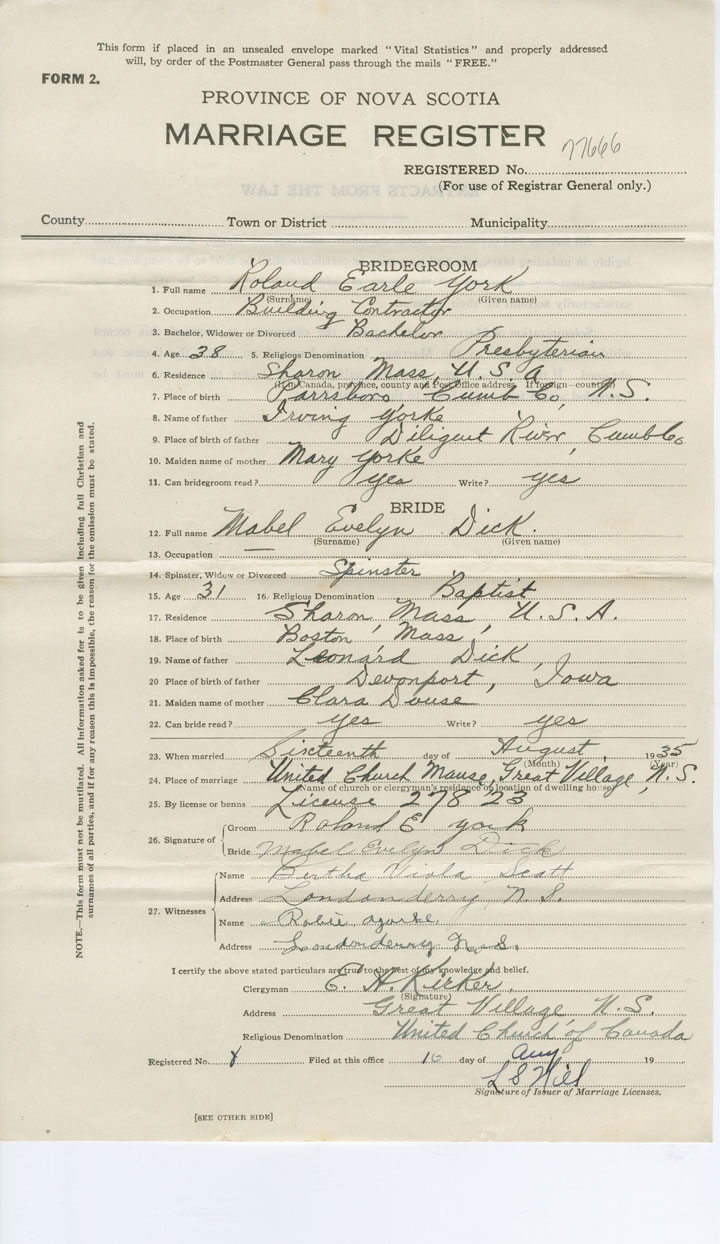 This form if placed in an unsealed envelope marked "Vital Statistics" and properly addressed
will, by order of the Postmaster General pass through the mails "FREE."
FORM 2.
PROVINCE OF NOVA SCOTIA
MARRIAGE REGISTER
77666
REGISTERED No.
(For use of Registrar General only.)
County Town or District Municipality
BRIDEGROOM
1. Full name Roland Earle York
(Surname) (Given name)
2. Occupation Building Contractor
3. Bachelor, Widower or Divorced Bachelor
4. Age 38 5. Religious Denomination Presbyterian
6. Residence Sharon Mass, U.S.A
(If in Canada, province, county and Post office address. If foreign—country)
7. Place of birth Parrsboro Cumb Co, N.S.
8. Name of father Irving Yorke
9. Place of birth of father Diligent River, Cumb Co
10. Maiden name of mother Mary Yorke
11. Can bridegroom read? yes Write? yes
BRIDE
12. Full name Mabel Evelyn Dick.
(Surname) (Given name)
13. Occupation —
14. Spinster, Widow or Divorced Spinster
15. Age 31 16. Religious Denomination Baptist
17. Residence Sharon, Mass, U.S.A.
18. Place of birth Boston, Mass,
19. Name of father Leonard Dick,
20 Place of birth of father Devonport, Iowa
21. Maiden name of mother Clara Douse
22. Can bride read? yes Write? yes
23. When married Sixteenth day of August, 1935
(Month) (Year)
24. Place of marriage United Church Manse, Great Village, N.S.
(Name of church or clergyman's residence or location of dwelling house)
25. By license or banns License 27823
26. Signature of
Groom Roland E York
Bride Mabel Evelyn Dick
27. Witnesses
Name Bertha Viola Scott
Address Londonderry, N.S.
Name Robie
Address Londonderry, N.S.
I certify the above stated particulars are true to the best of my knowledge and belief.
Clergyman E. H. Kirker.
(Signature)
Address Great Village N.S.
Religious Denomination United Church of Canada
Registered No. 8 Filed at this office 16 day of Aug 19
Signature of Issuer of Marriage Licenses.
[SEE OTHER SIDE]
NOTE.—This form must not be mutilated. All information asked for is to be given including full Christian and
surnames of all parties, and if for any reason this is impossible, the reason for the omission must be stated.